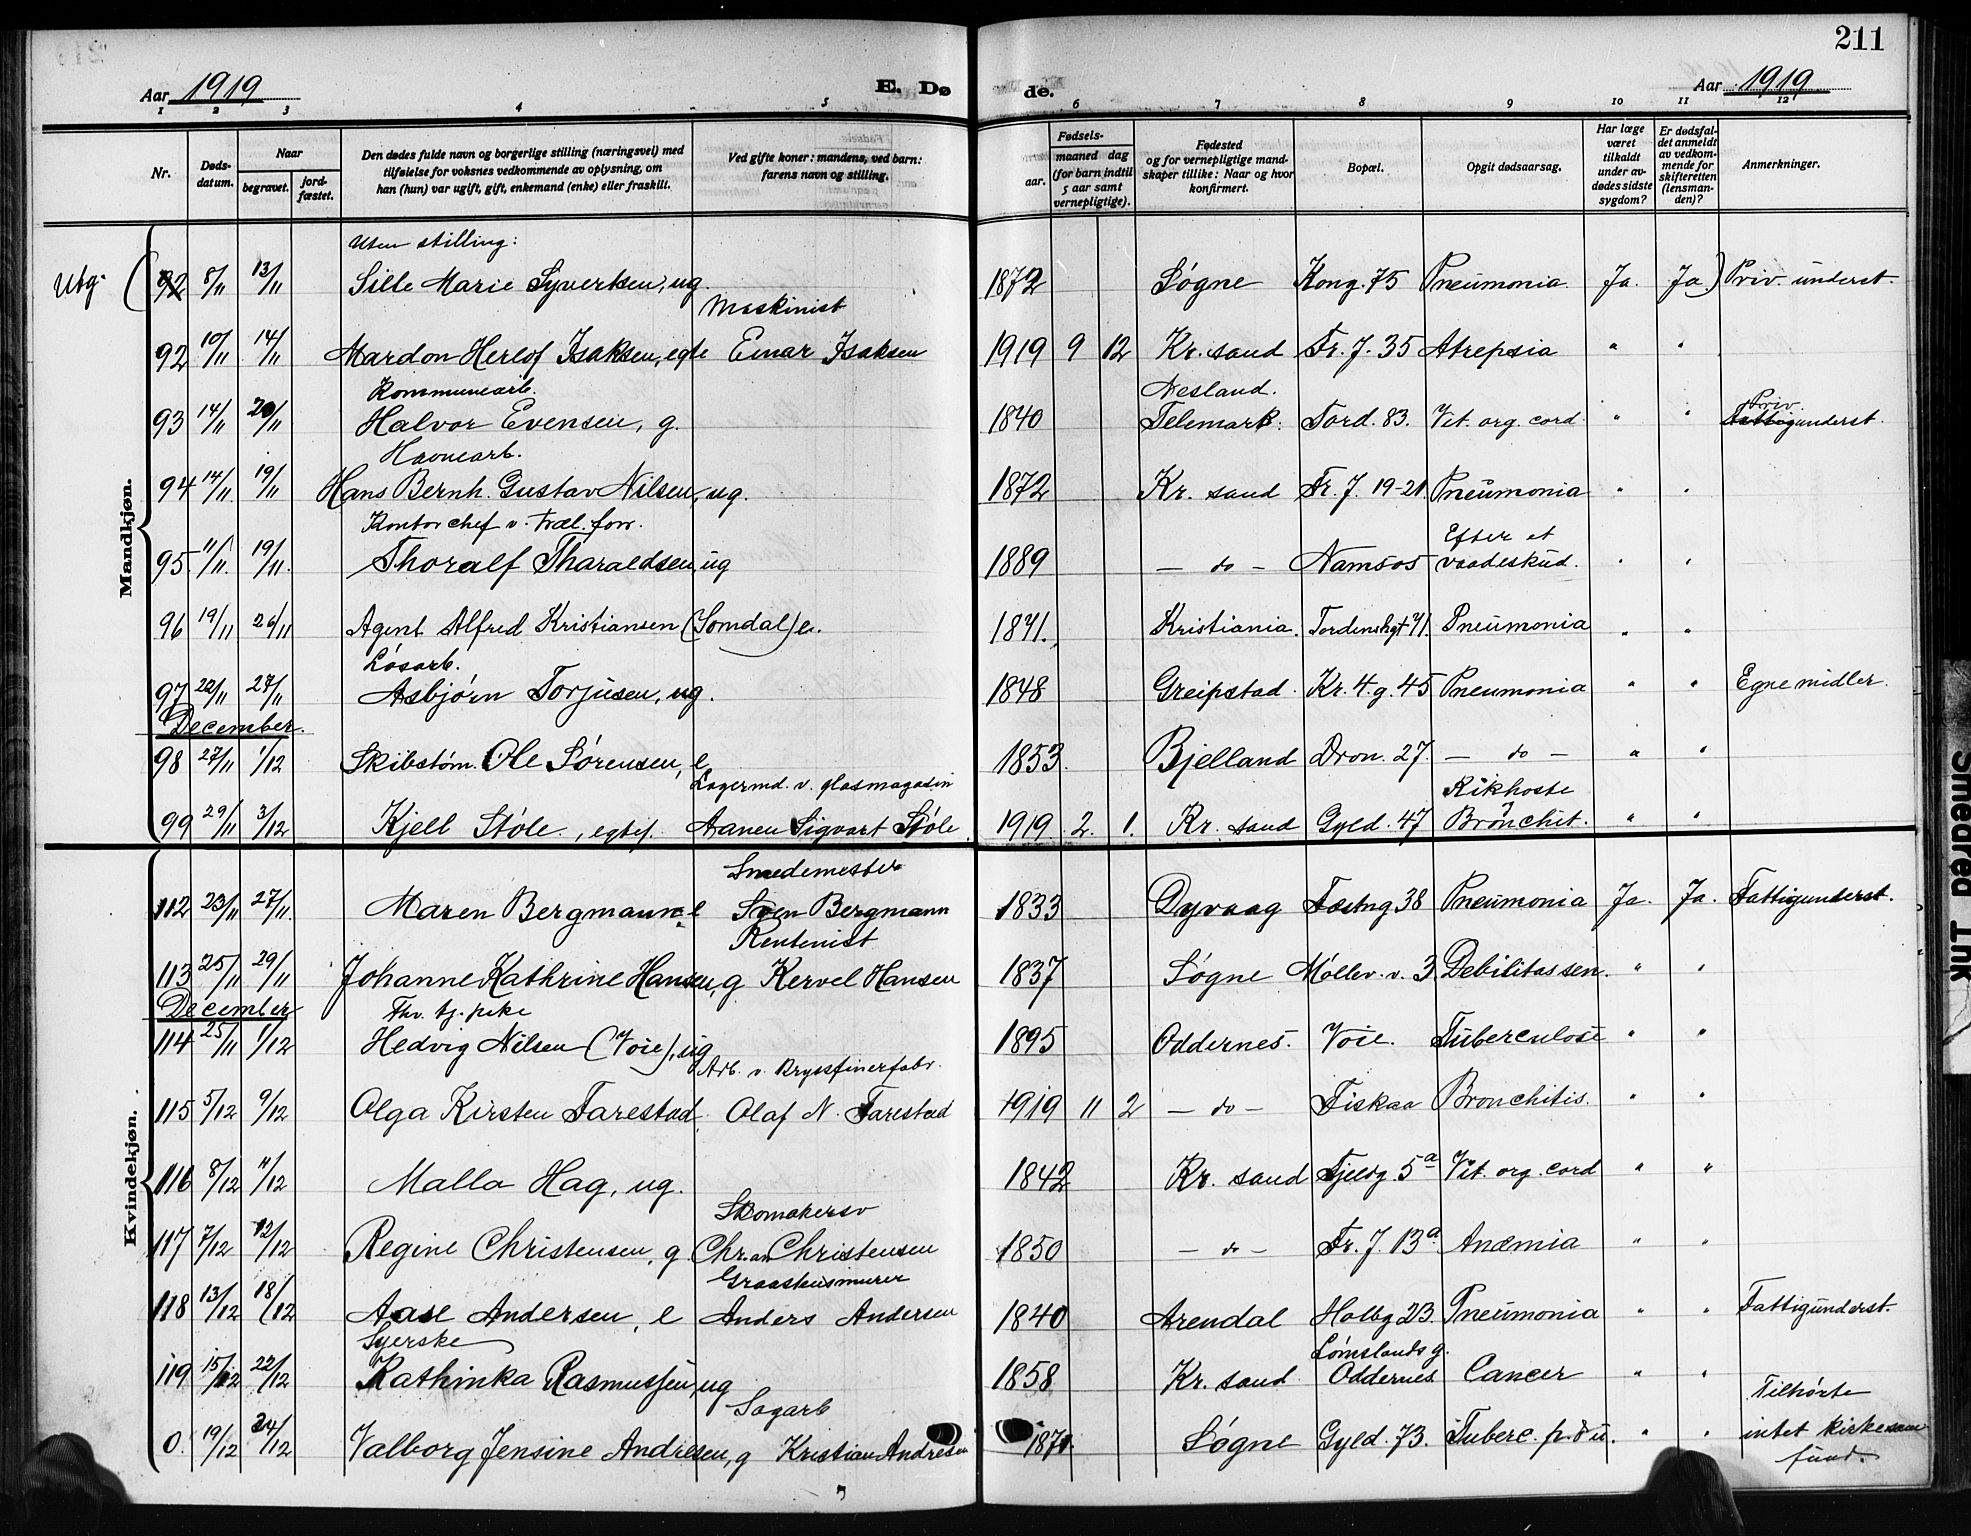 211
Aar 1919 E. Dø de. Aar 1919
1 2 3 4 5 6 7 8 9 10 11 12
Nr.
Døds-
datum.
Naar
begravet.
jord-
fæstet.
Den dødes fulde navn og borgerlige stilling (næringsvei) med
tilføielse for voksnes vedkommende av oplysning, om
han (hun) var ugift, gift, enkemand (enke) eller fraskilt.
Ved gifte koner: mandens, ved barn:
farens navn og stilling.
Fødsels-
aar.
maaned dag
(for barn indtil
5 aar samt
vernepligtige).
Fødested
og for vernepligtige mand-
skaper tillike: Naar og hvor
konfirmert.
Bopæl.
Opgit dødsaarsag.
Har læge
været
tilkaldt
under av-
dødes sidste
sygdom?
Er dødsfal-
det anmeldt
av vedkom-
mende for
skifteretten
(lensman-
den)?
Anmerkninger.
Mandkjøn.
Uten stilling:
Utg. (92 8/11 13/11 Sille Marie Syvertsen, ug. 1872 Søgne Kong. 75 Pneumonia Ja. Ja) Priv. underst.
Maskinist
92 10/11 14/11 Mardon Herlof Isaksen, egte Einar Isaksen 1919 9 12 Kr. sand Fr. J. 35 Atrepsia " "
Kommunearb. Nesland. Priv
93 14/11 20/11 Halvor Evensen, g. 1840 Telemark. Tord. 83. Vit. org. cord. " " Fattigunderst.
Havnearb.
94 14/11 19/11 Hans Bernh. Gustav Nilsen, ug. 1872 Kr. sand Fr. J. 19-21 Pneumonia " "
Kontorchef v. træl. forr. Efter et
95. 11/11. 19/11. Thoralf Tharaldsen, ug 1889 — do — Namsos vaadeskud. " "
96 19/11 26/11 Agent Alfred Kristiansen (Somdal) e. 1841. Kristiania. Tordenskgt 41. Pneumonia " "
Løsarb.
97 22/11 27/11 Asbjørn Torjusen, ug. 1848 Greipstad. Kr. 4. g. 45 Pneumonia " " Egne midler.
December.
98 27/11 1/12 Skibstøm. Ole Sørensen, e 1853. Bjelland Dron. 27. — do — " "
Lagermd. v. glasmagasin Kikhoste
99 29/11 3/12 Kjell Støle, egtef. Aanen Sigvart Støle. 1919 2. 1. Kr. sand Gyld. 47 Bronchit. " "
Kvindekjøn.
Smedemester
112 23/11 27/11 Maren Bergmann e Sven Bergmann 1833 Dyvaag Fæstng 38 Pneumonia Ja. Ja. Fattigunderst.
Rentenist
113 25/11 29/11 Johanne Kathrine Hansen, g Kervel Hansen 1837 Søgne Møllev. v. 3. Debilitas sen. " "
December Fhv. tj. pike
114 25/11 1/12 Hedvig Nilsen (Voie), ug 1895 Oddernes. Voie. Tuberculose " "
Arb. v. Krysfinerfabr.
115 5/12 9/12 Olga Kirsten Farestad. Olaf N. Farestad 1919 11 2 — do — Fiskaa Bronchitis. " "
116 8/12 11/12 Malla Hag, ug. 1842 Kr. sand Fjeldg 5a Vit. org. cord " "
Skomakersv
117 7/12 12/12 Regine Christensen, g Chr.an Christensen 1850 — do — Fr. J. 13a Anæmia " "
Graastensmurer
118 13/12 18/12 Aase Andersen, e Anders Andersen 1840 Arendal Holbg 23. Pneumonia " " Fattigunderst.
Syerske Lømslands g.
119 15/12 22/12 Kathinka Rasmussen, ug 1858 Kr. sand Oddernes Cancer " "
Sagarb Tilhørte
0. 19/12 24/12 Valborg Jensine Andresen, g Kristian Andresen 1871. Søgne Gyld. 73. Tuberc. p. d u. " " intet kirkesam
fund.
Smeared Ink